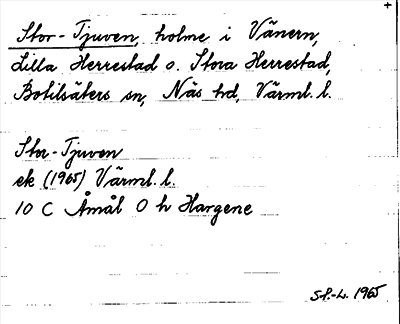 +
Stor-Tjuven, holme i Vänern,
Lilla Herrestad o. Stora Herrestad,
Botilsäters sn, Näs hd, Värml. l.
Stor-Tjuven
ek (1965) Värml. l.
10 C Åmål O h Hargene
S.P.-L. 1965